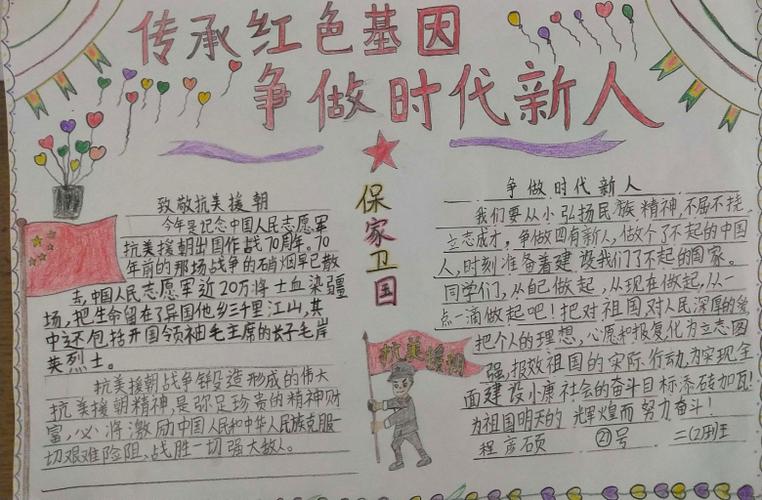 传承红色基因
争做时代新人
致敬抗美援朝
今年是记念中国人民志愿军
抗美援朝出国作战70周年。70
年前的那场战争的硝烟早已散
去,中国人民志愿军近20万将士血染疆
场,把生命留在了异国他乡三千里江山,其
中还包括开国领袖毛主席的长子毛岸
英烈士。
抗美援朝战争锻造形成的伟大
抗美援朝精神,是弥足珍贵的精神财
富,必将激励中国人民和中华人民族克服一
切艰难险阻、战胜一切强大敌人。
保家卫国
抗美援朝
争做时代新人
我们要从小弘扬民族精神,不屈不挠,
立志成才,争做四有新人,做个了不起的中国
人,时刻准备着建设我们了不起的国家。
同学们,从自己做起,从现在做起,从一
点一滴做起吧!把对祖国对人民深厚的爱,
把个人的理想,心愿和报复化为立志图
强,报效祖国的实际行动,为实现全
面建设小康社会的奋斗目标添砖加瓦!
为祖国明天的辉煌而努力奋斗!
程彦硕 21号 二(2)班